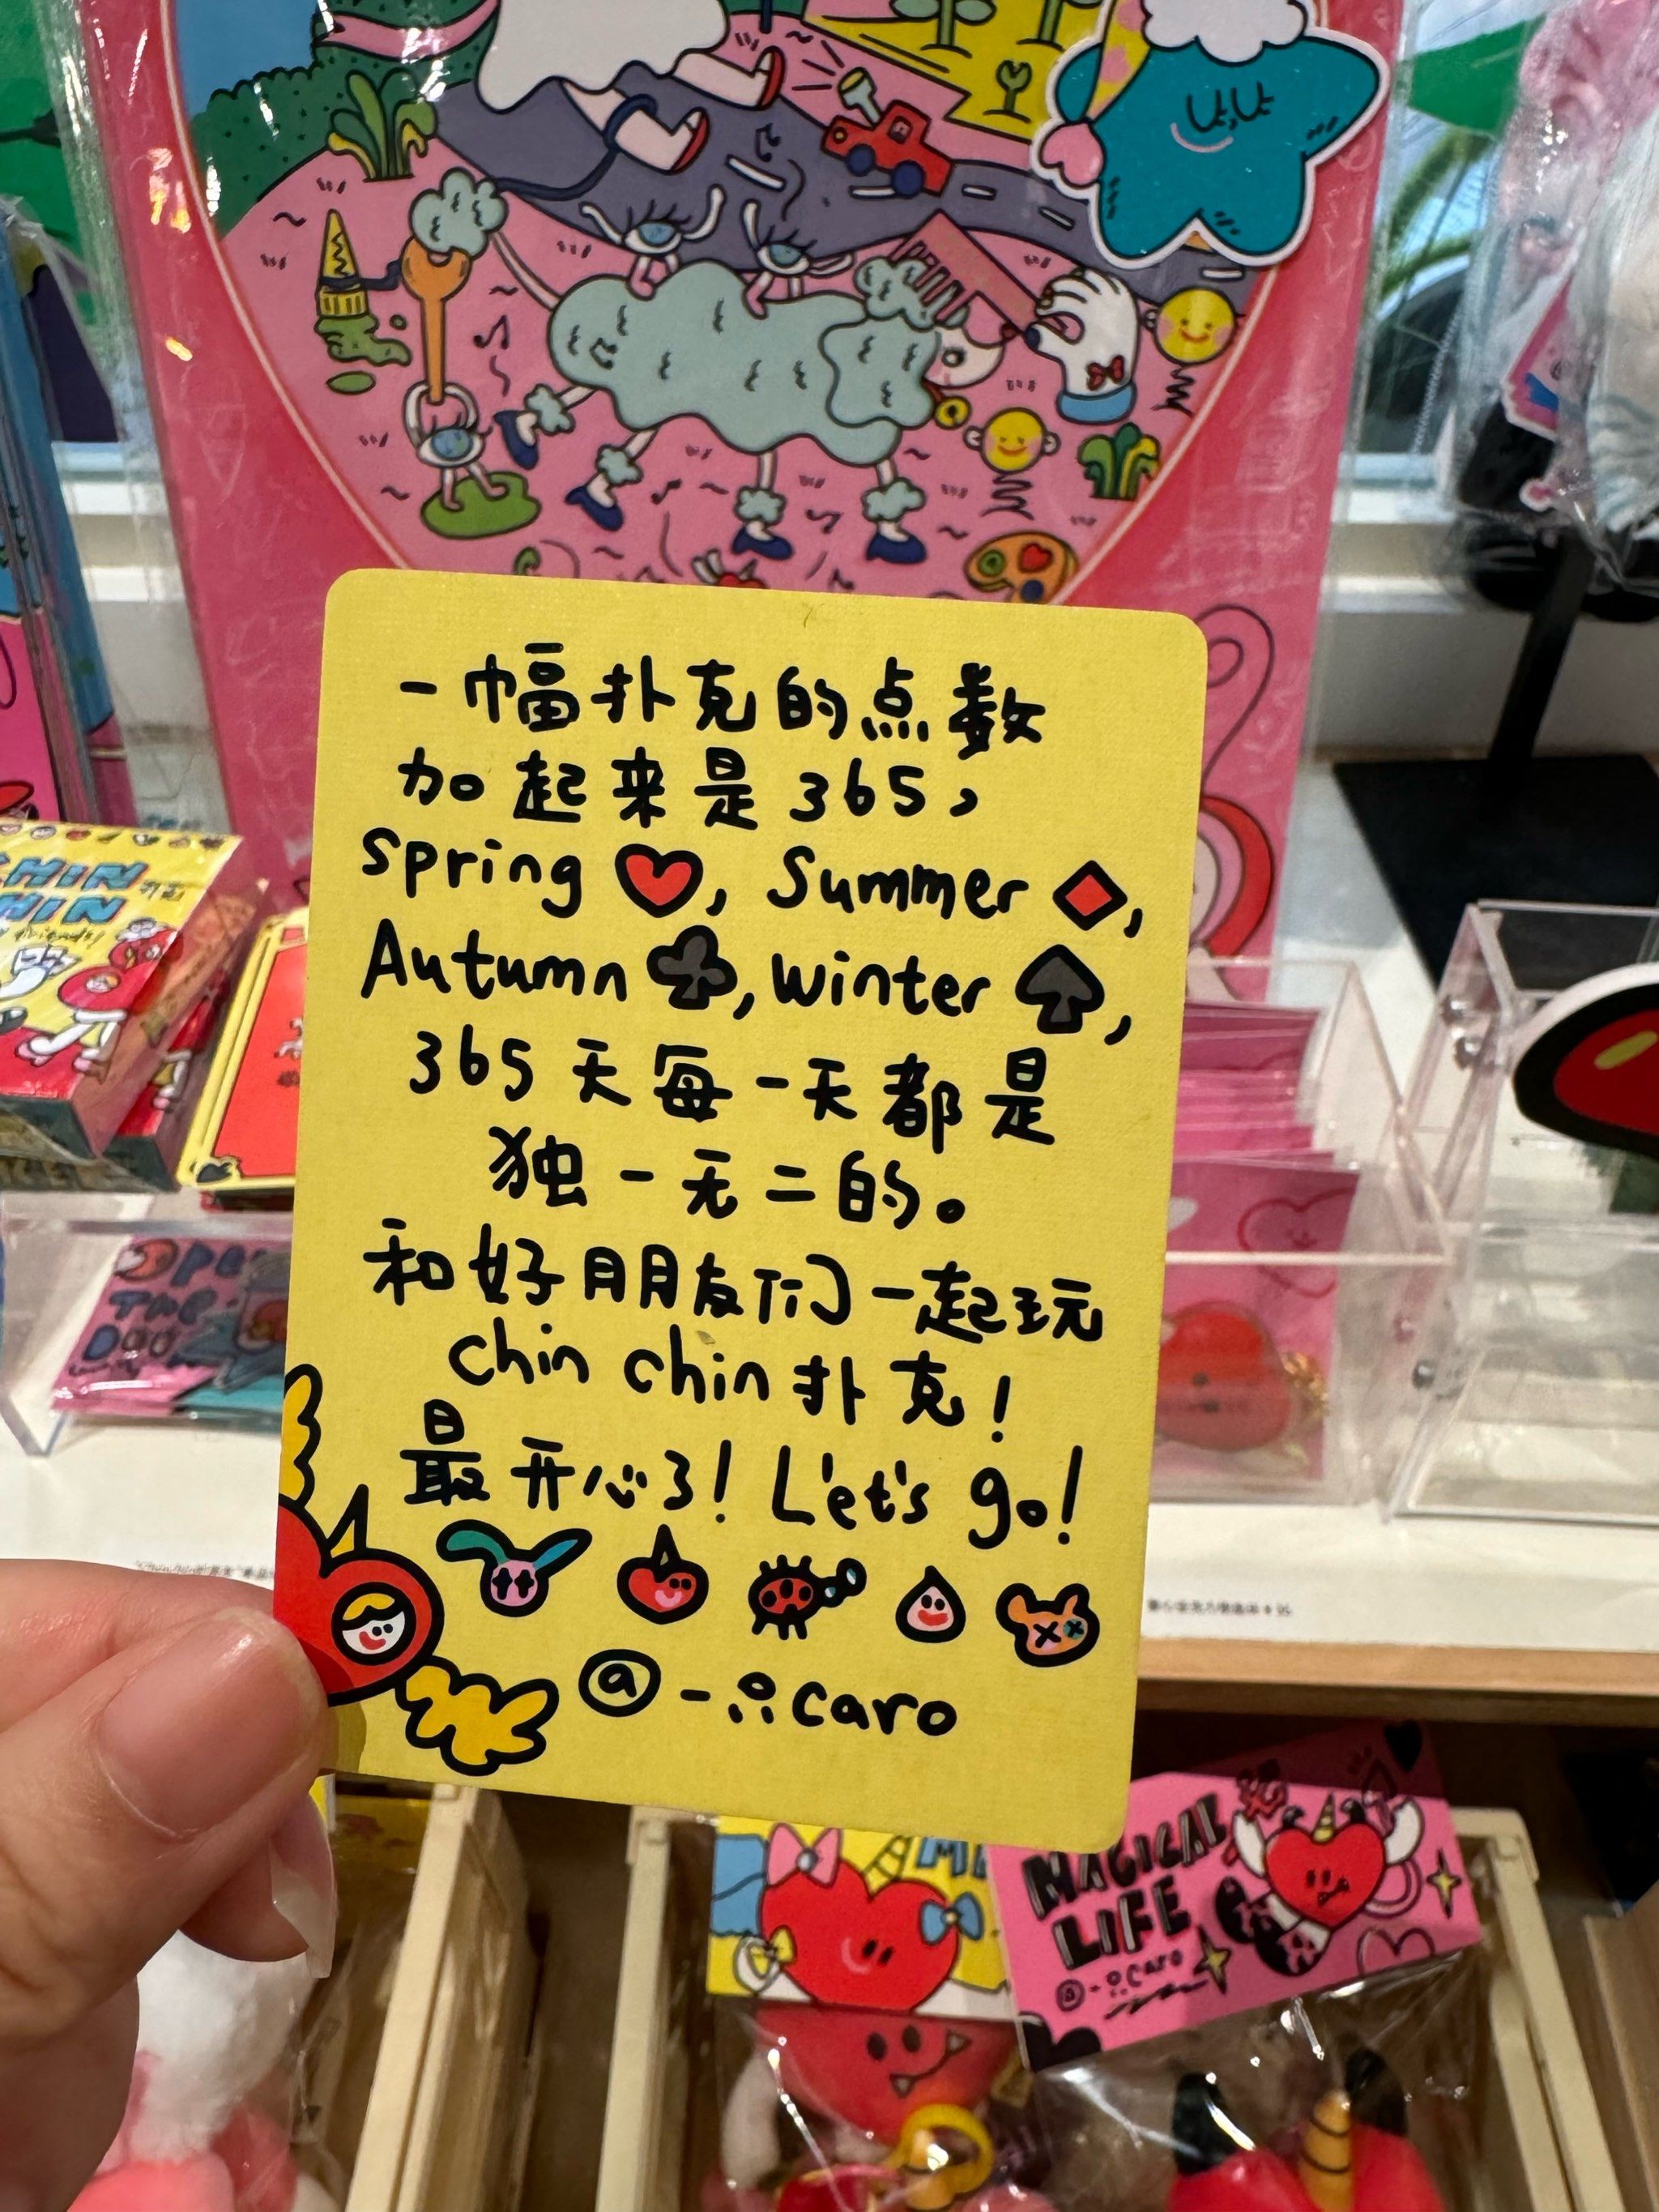 一幅扑克的点数
加起来是365,
Spring ♥, Summer ♦,
Autumn ♣, winter ♠,
365天每一天都是
独一无二的。
和好朋友们一起玩
chin chin 扑克!
最开心了! Let's go!
@-caro
CHIN
HIN
OPEN
THE
DOO
MAGICAL
LIFE
@-caro